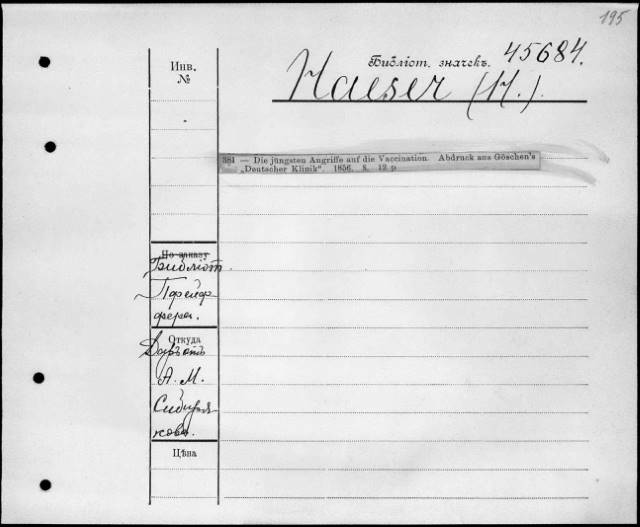 195
Библіот. значекъ. 45684.
Инв.
№
Haeser (H.).
381 — Die jüngsten Angriffe auf die Vaccination. Abdruck aus Göschen's
„Deutscher Klinik“. 1856. 8. 12 p
По заказу
Библіот.
Пфейф-
фера.
Откуда
Даръ отъ
А. М.
Сибиря-
кова.
Цѣна